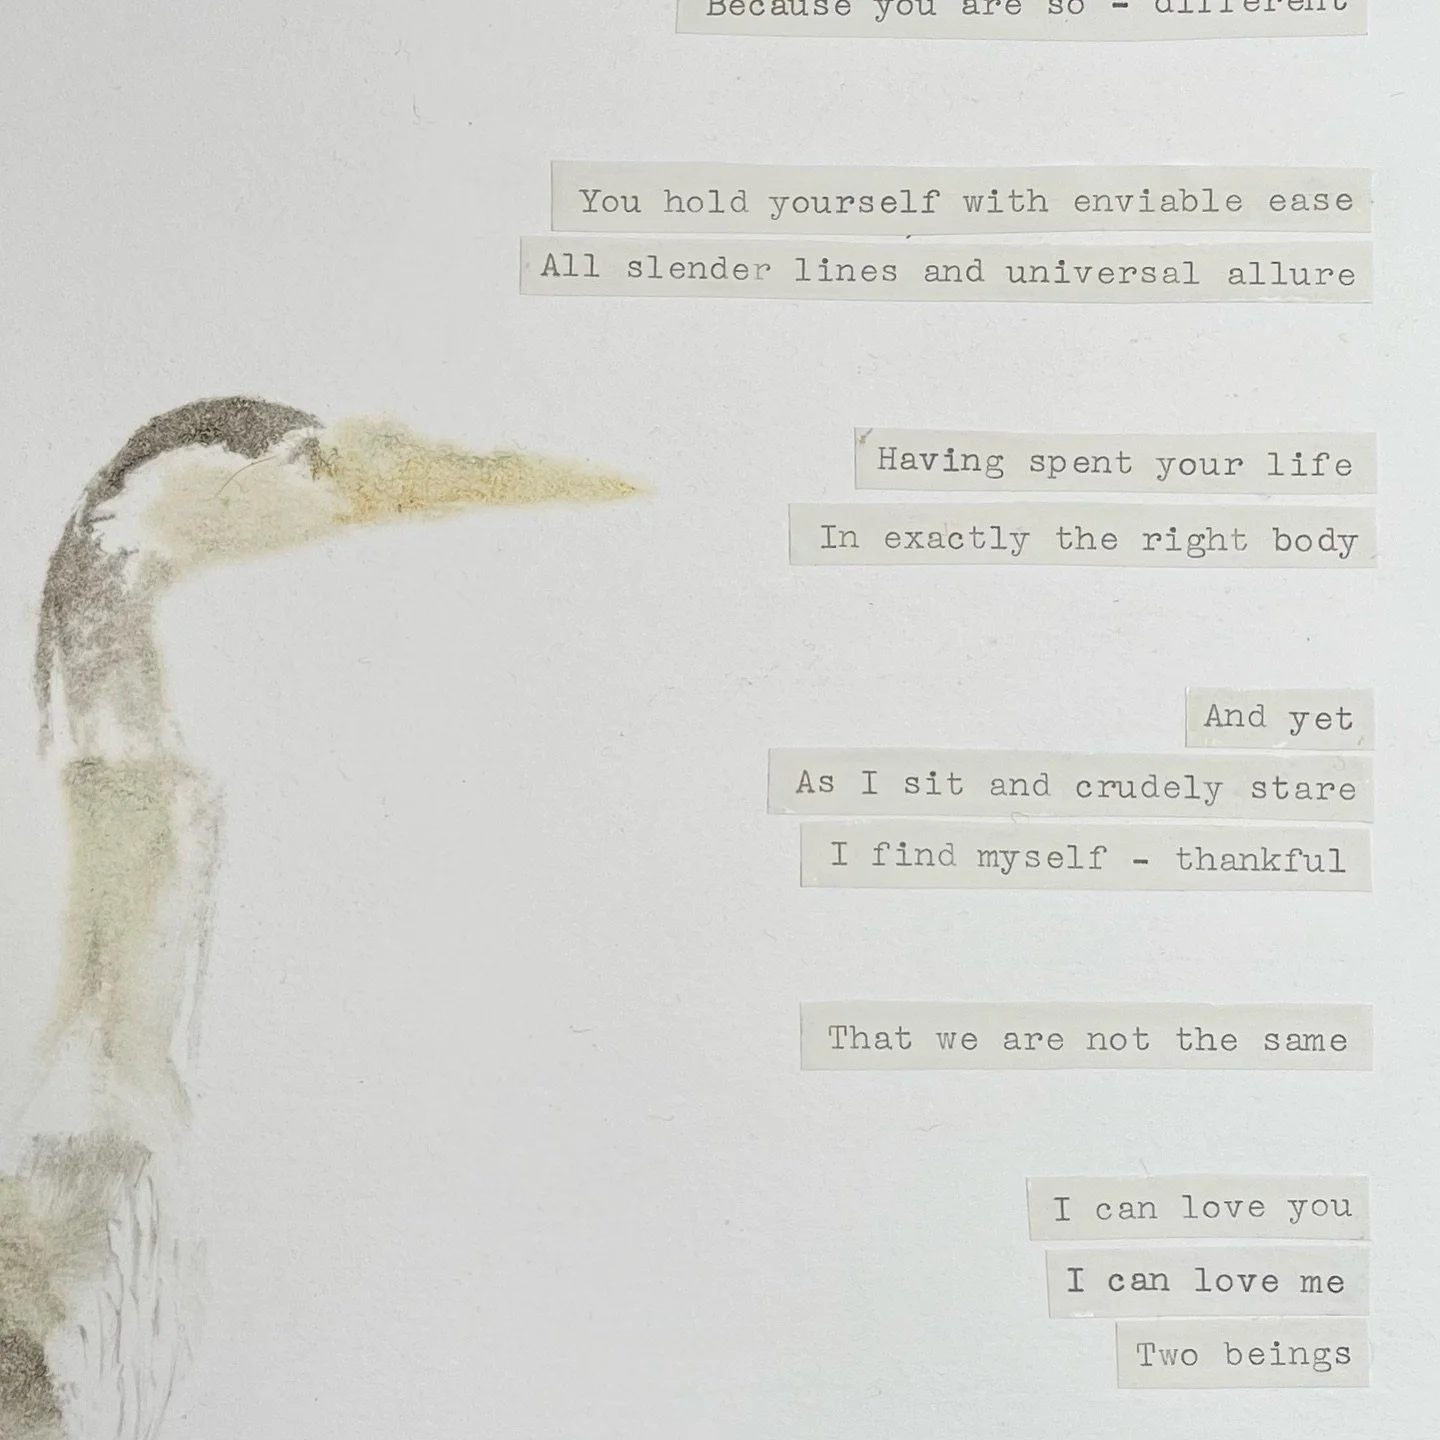 Because you are so - different
You hold yourself with enviable ease
All slender lines and universal allure
Having spent your life
In exactly the right body
And yet
As I sit and crudely stare
I find myself - thankful
That we are not the same
I can love you
I can love me
Two beings